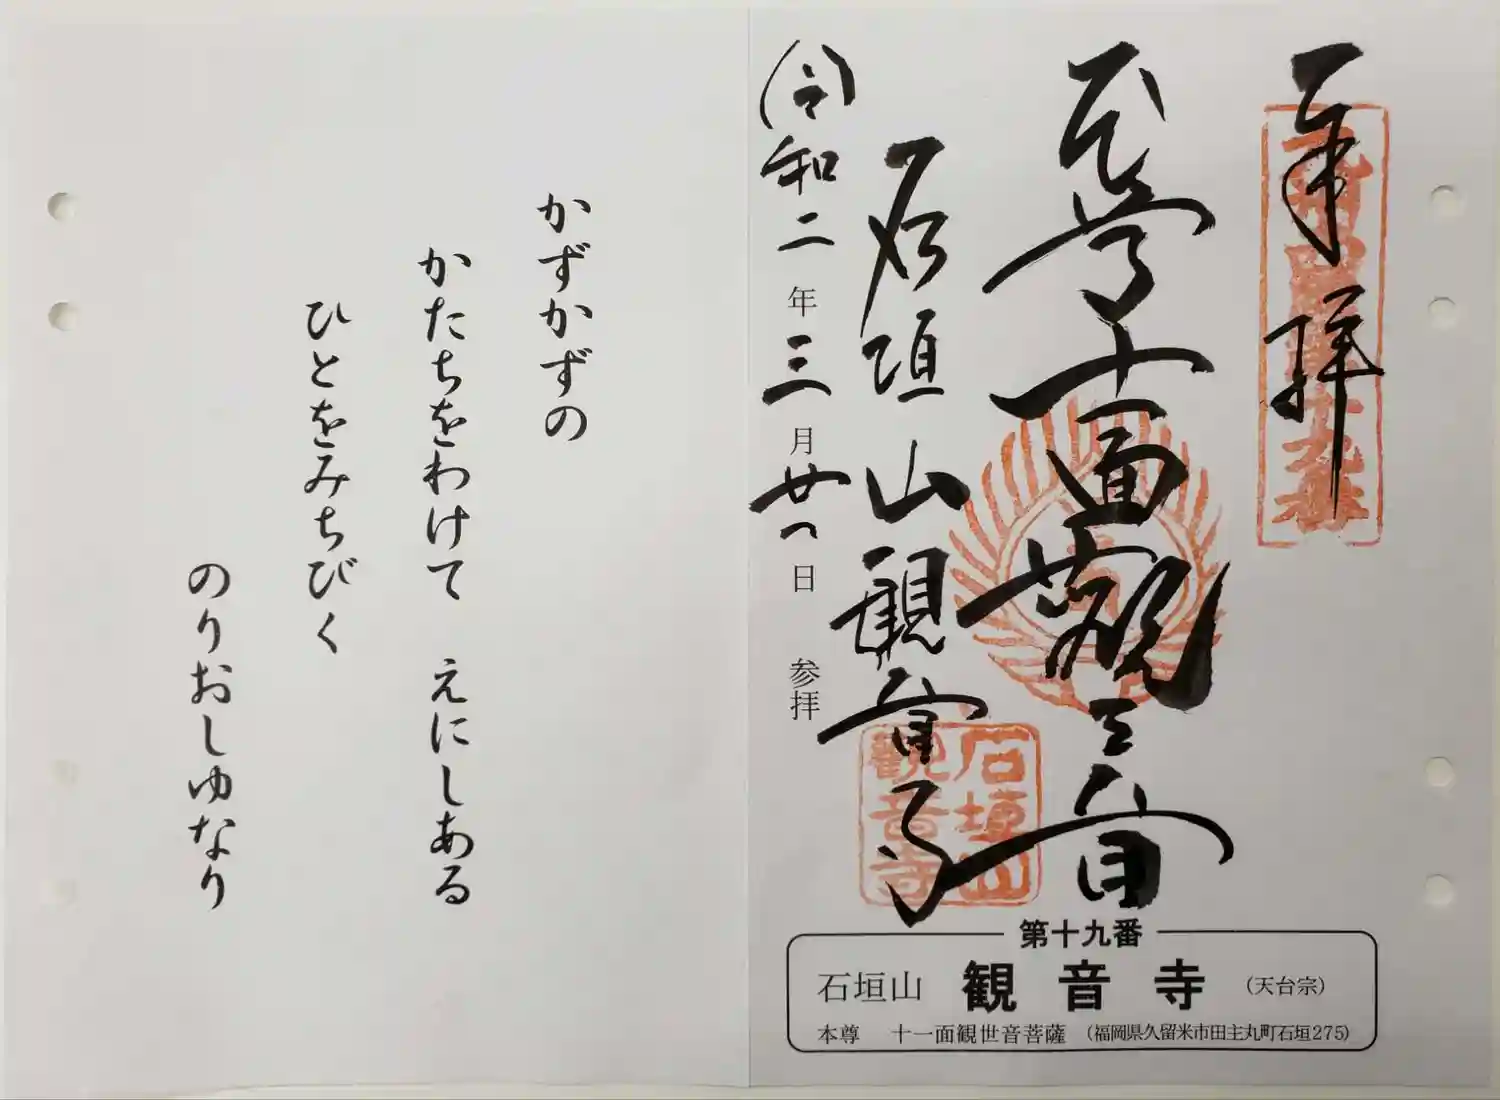 奉拝
本尊十一面観世音
石垣山観音寺
令和二年三月廿一日 参拝
石垣山
観音寺
第十九番
石垣山 観音寺 (天台宗)
本尊 十一面観世音菩薩 (福岡県久留米市田主丸町石垣275)
かずかずの
かたちをわけて えにしある
ひとをみちびく
のりおしゆなり